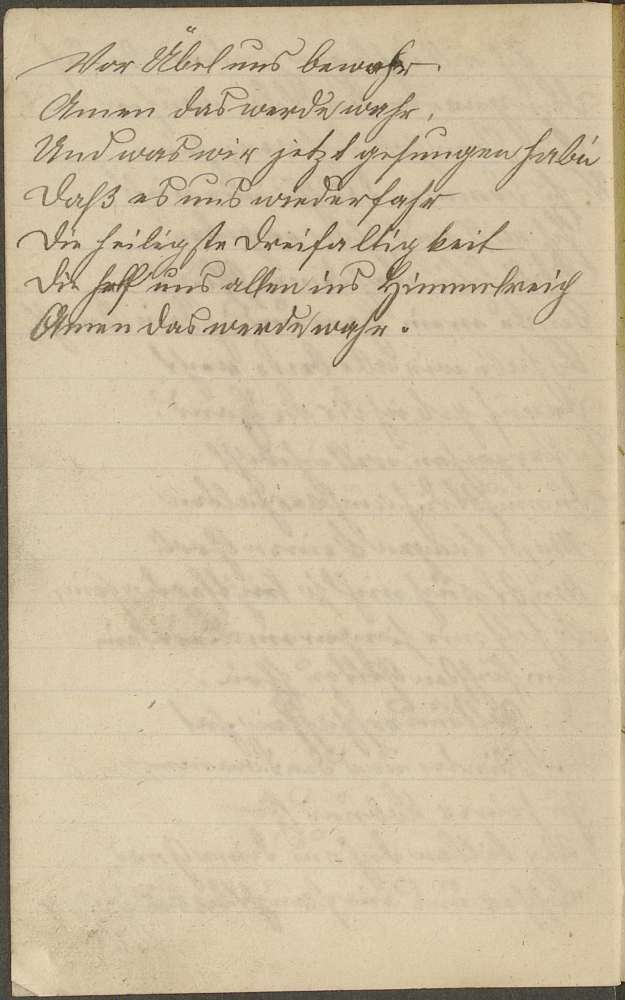 Vor Übel uns bewahr.
Amen das werde wahr,
Und was wir jetzt gesungen habn
Daß es uns wiederfahr
Die heiligste Dreifaltigkeit
Die helf uns allen ins Himmelreich
Amen das werde wahr.